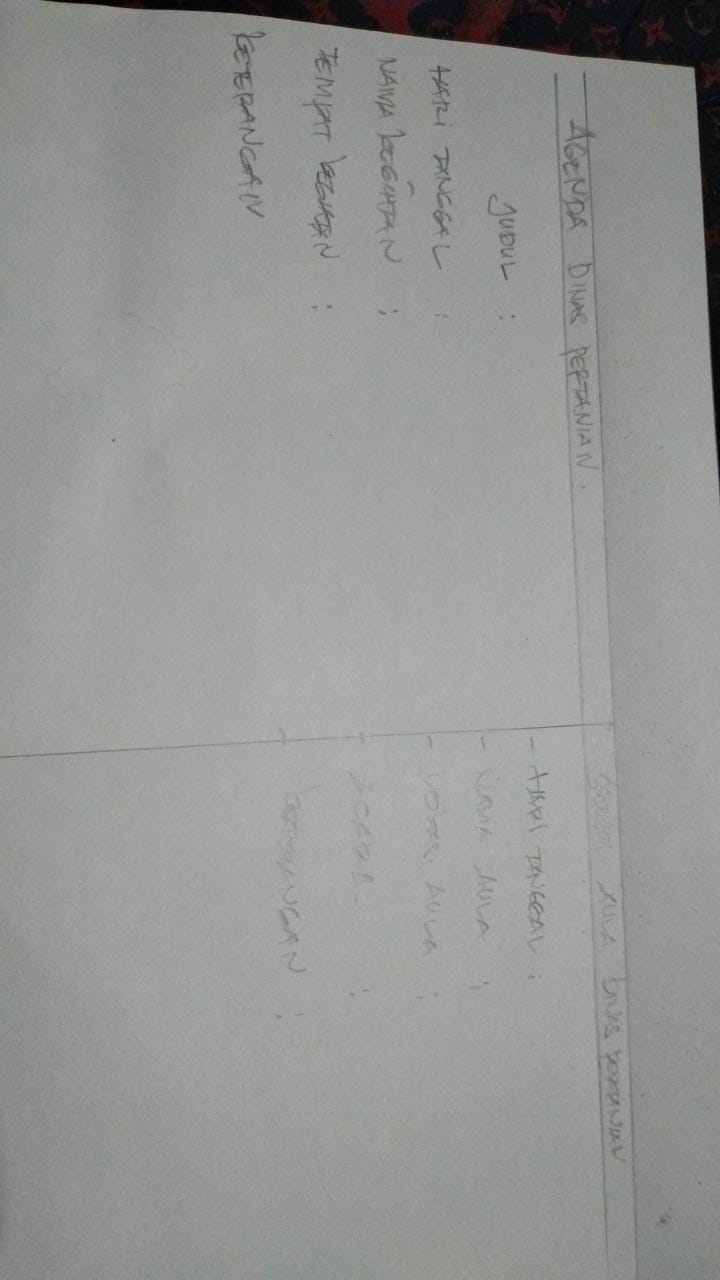 AGENDA DINAS PERTANIAN.
JUDUL :
HARI TANGGAL :
NAMA KEGIATAN :
TEMPAT KEGIATAN :
KETERANGAN
AULA DINAS PERTANIAN
- HARI TANGGAL :
- NAMA AULA :
- AULA :
- ACARA :
- KETERANGAN :